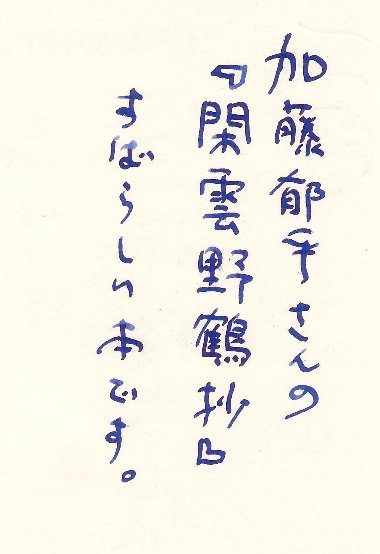 加藤郁乎さんの
『閑雲野鶴抄』
すばらしい本です。